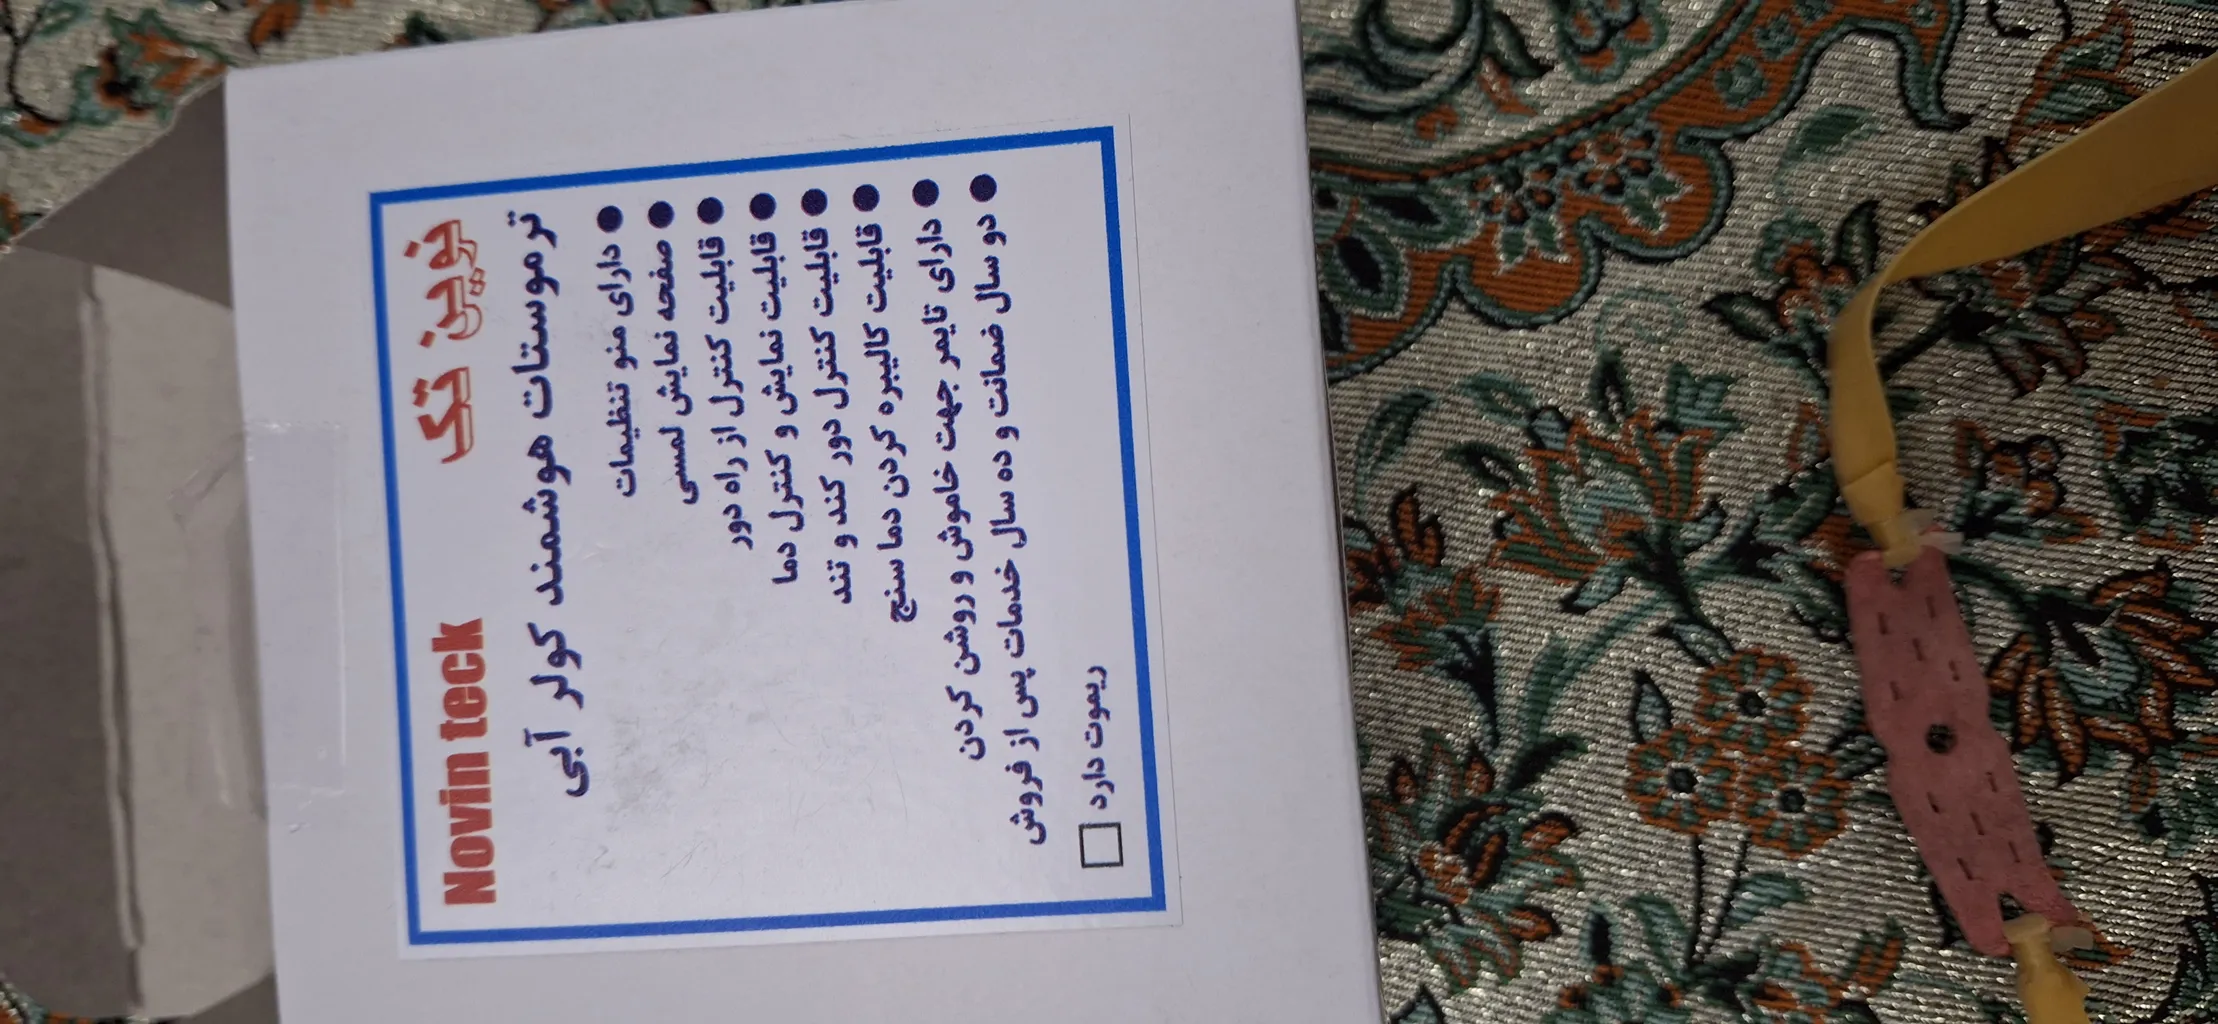 Novin teck نوین تک
ترموستات هوشمند کولر آبی
● دارای منو تنظیمات
● صفحه نمایش لمسی
● قابلیت کنترل از راه دور
● قابلیت نمایش و کنترل دما
● قابلیت کنترل دور کند و تند
● قابلیت کالیبره کردن دما سنج
● دارای تایمر جهت خاموش و روشن کردن
● دو سال ضمانت و ده سال خدمات پس از فروش
ریموت دارد □